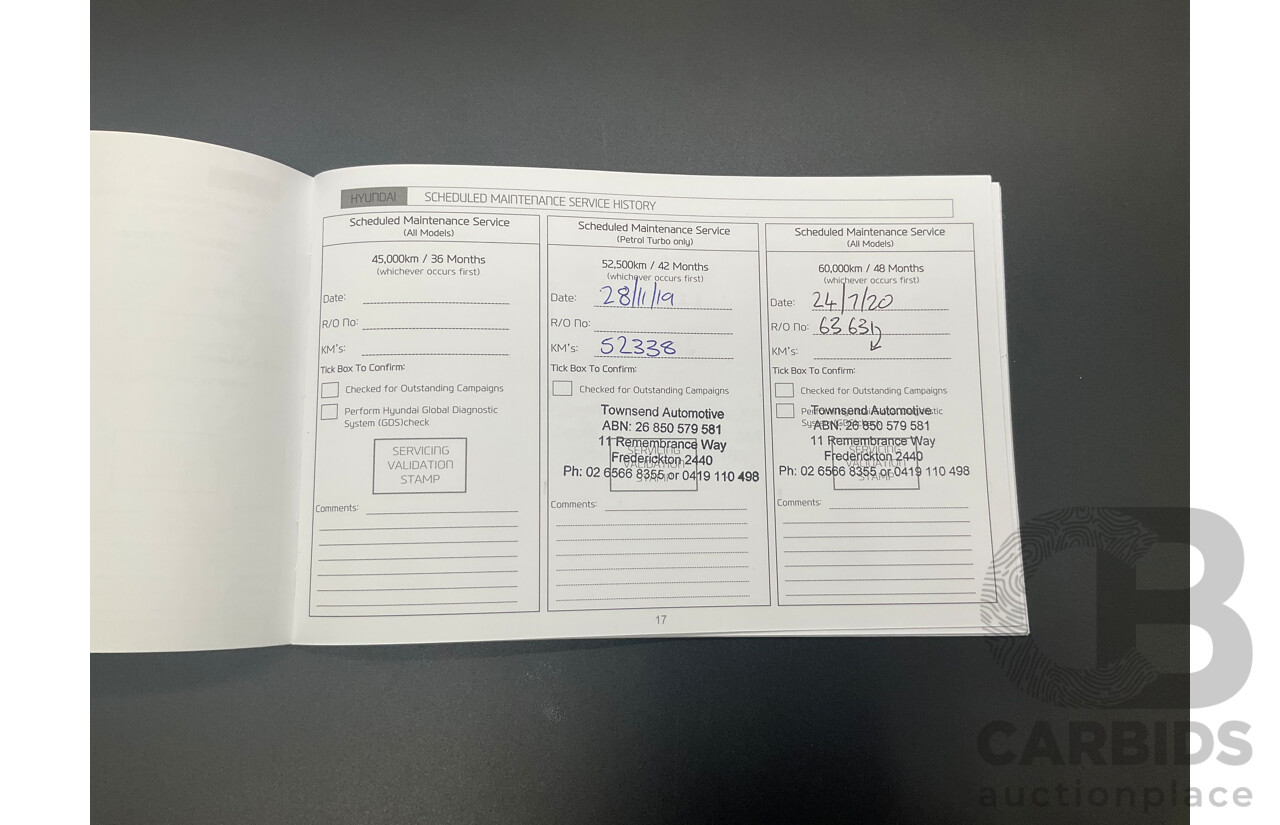 HYUNDAI SCHEDULED MAINTENANCE SERVICE HISTORY
Scheduled Maintenance Service
(All Models)
45,000km / 36 Months
(whichever occurs first)
Date:
R/O No:
KM's:
Tick Box To Confirm:
Checked for Outstanding Campaigns
Perform Hyundai Global Diagnostic
System (GDS)check
SERVICING
VALIDATION
STAMP
Comments:
Scheduled Maintenance Service
(Petrol Turbo only)
52,500km / 42 Months
(whichever occurs first)
Date: 28/11/19
R/O No:
KM's: 52338
Tick Box To Confirm:
Checked for Outstanding Campaigns
Townsend Automotive
ABN: 26 850 579 581
11 Remembrance Way
Frederickton 2440
Ph: 02 6566 8355 or 0419 110 498
SERVICING
VALIDATION
STAMP
Comments:
Scheduled Maintenance Service
(All Models)
60,000km / 48 Months
(whichever occurs first)
Date: 24/7/20
R/O No: 63631
KM's:
Tick Box To Confirm:
Checked for Outstanding Campaigns
Townsend Automotive
ABN: 26 850 579 581
11 Remembrance Way
Frederickton 2440
Ph: 02 6566 8355 or 0419 110 498
SERVICING
VALIDATION
STAMP
Comments:
17
CB
CARBIDS
auctionplace